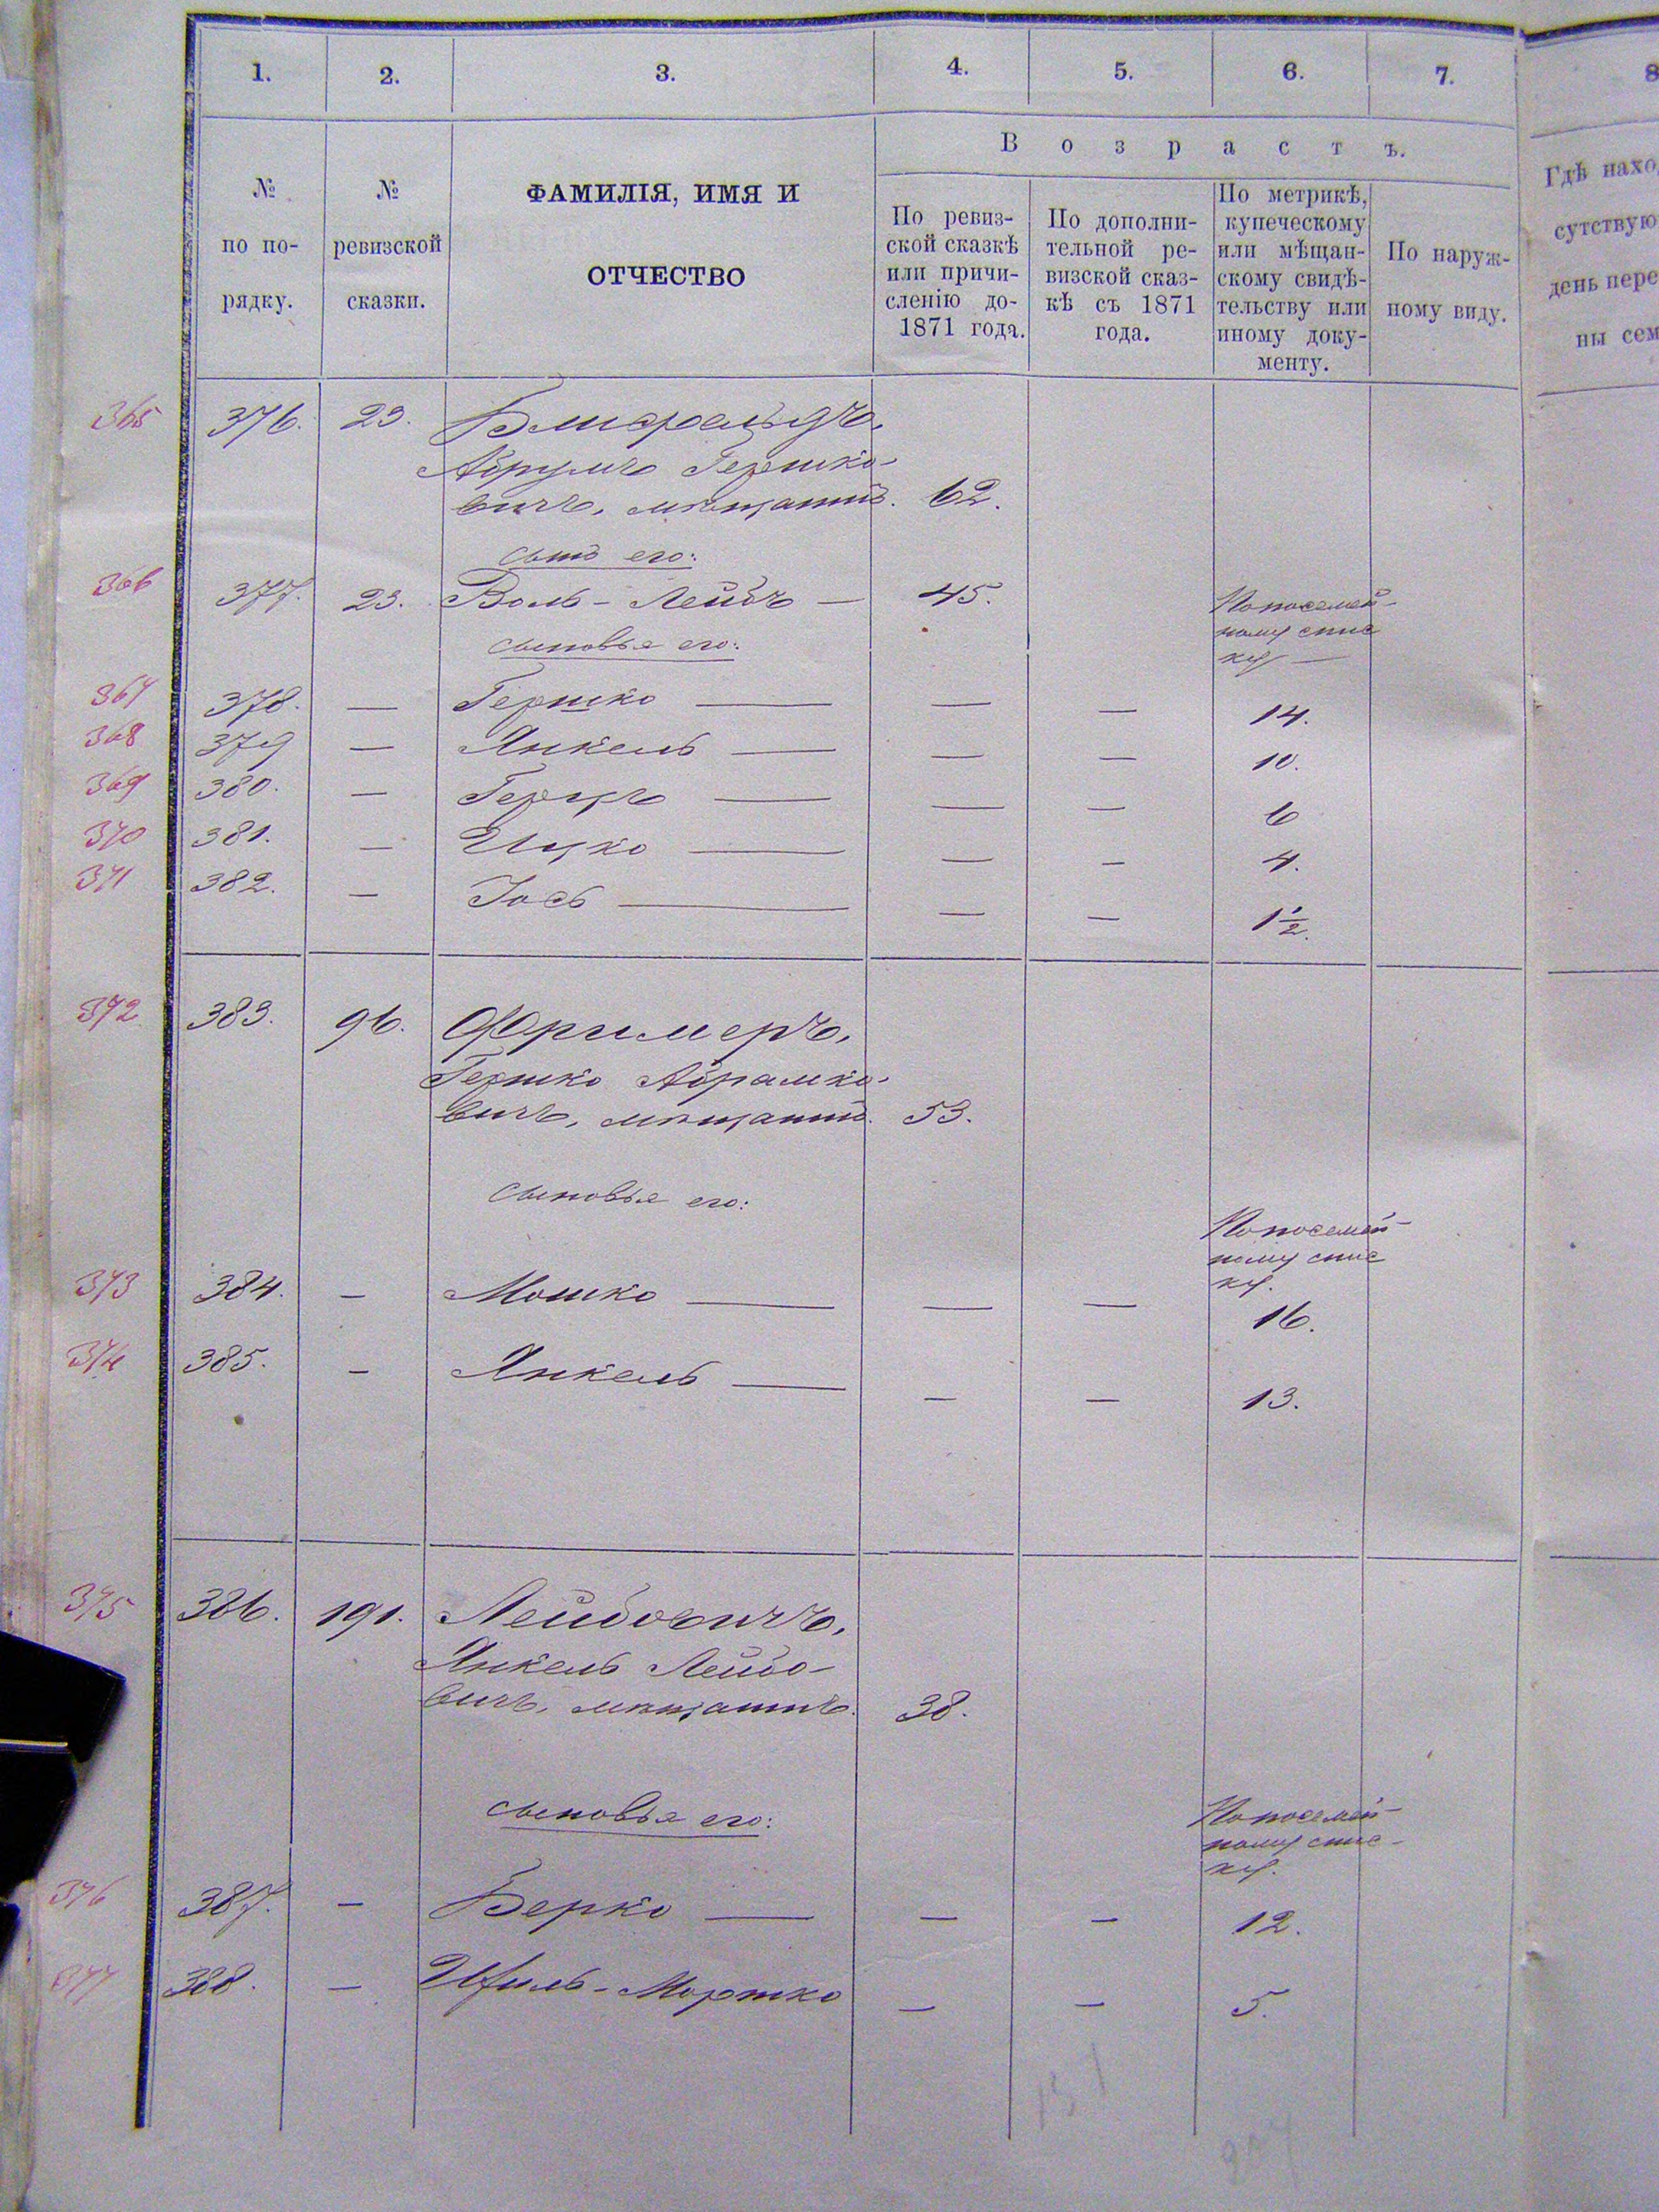 1. 2. 3. 4. 5. 6. 7. 8
№
по по-
рядку.
№
ревизской
сказки.
ФАМИЛІЯ, ИМЯ И
ОТЧЕСТВО
В о з р а с т ъ.
По ревиз-
ской сказкѣ
или причи-
сленію до-
1871 года.
По дополни-
тельной ре-
визской сказ-
кѣ съ 1871
года.
По метрикѣ,
купеческому
или мѣщан-
скому свидѣ-
тельству или
иному доку-
менту.
По наруж-
ному виду.
Гдѣ нахо
сутствую
день пере
ны сем
365 376. 23.
Абрумъ Гершко-
вичъ, мѣщанинъ. 62.
сынъ его:
366 377. 23. Воль-Лейбъ — 45. По посемей-
ному спис
ку —
сыновья его:
367 378. — Гершко — — — 14.
368 379 — Янкель — — — 10.
369 380. — Герцъ — — — 6
370 381. — Ицко — — — 4.
371 382. — Іось — — — 1½.
372 383. 96. Фримеръ,
Гершко Абрамко-
вичъ, мѣщанинъ. 53.
сыновья его:
По посемей-
ному спис
ку.
373 384. — Мошко — — — 16.
374 385. — Янкель — — — 13.
375 386. 191. Лейбовичъ,
Янкель Лейбо-
вичъ, мѣщанинъ. 38.
сыновья его:
По посемей-
ному спис-
ку.
376 387. — Берко — — — 12.
377 388. — Ихиль-Мортко — — 5.